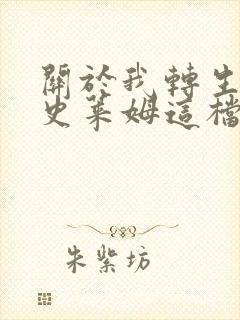 關於我轉生
史萊姆這檔
朱紫坊